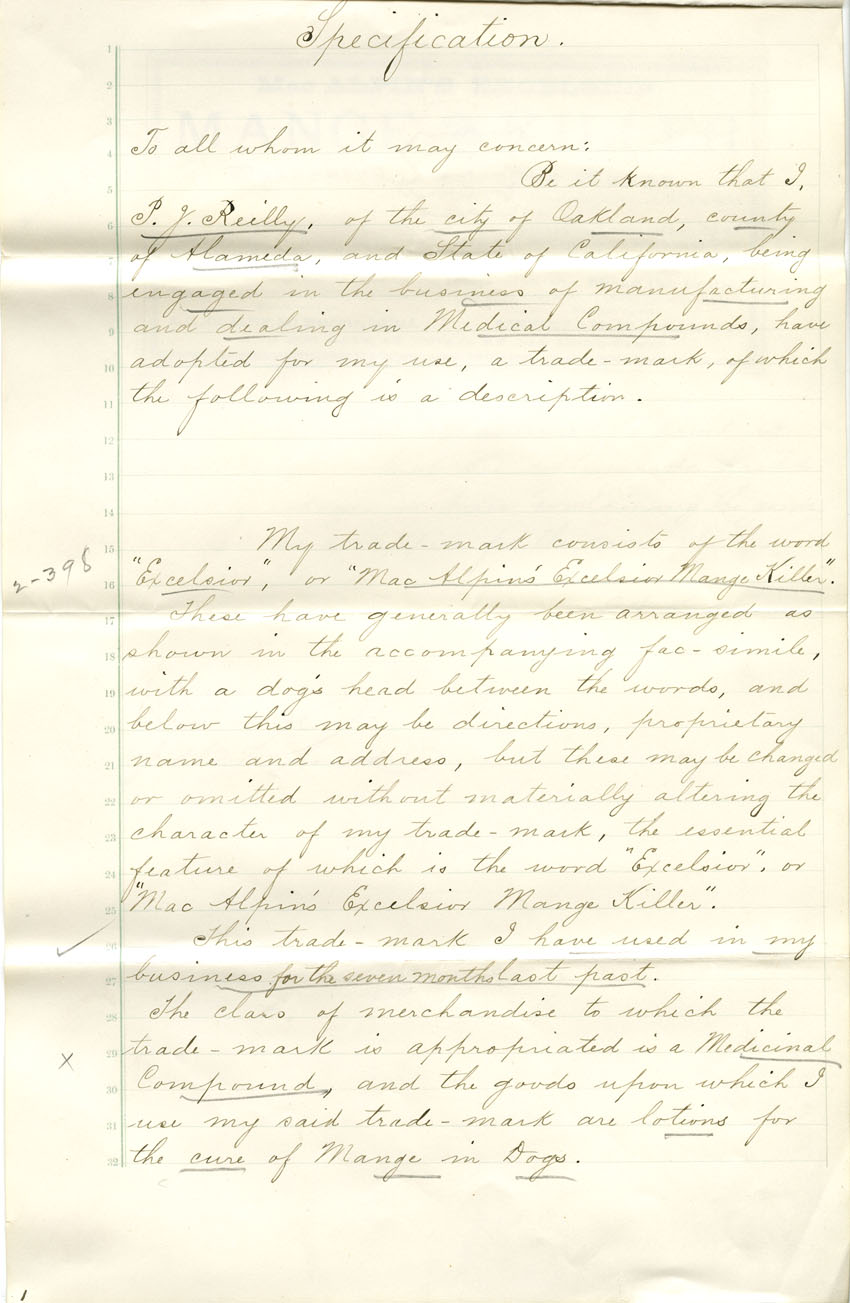 Specification.
To all whom it may concern:
Be it known that I,
P. J. Reilly, of the city of Oakland, county
of Alameda, and State of California, being
engaged in the business of manufacturing
and dealing in Medical Compounds, have
adopted for my use, a trade-mark, of which
the following is a description.
My trade-mark consists of the word
2-398
"Excelsior", or "Mac Alpin's Excelsior Mange Killer".
These have generally been arranged as
shown in the accompanying fac-simile,
with a dog's head between the words, and
below this may be directions, proprietary
name and address, but these may be changed
or omitted without materially altering the
character of my trade-mark, the essential
feature of which is the word "Excelsior". or
"Mac Alpin's Excelsior Mange Killer".
This trade-mark I have used in my
business for the seven months last past.
The class of merchandise to which the
trade-mark is appropriated is a Medicinal
x
Compound, and the goods upon which I
use my said trade-mark are lotions for
the cure of Mange in Dogs.
1
2
3
4
5
6
7
8
9
10
11
12
13
14
15
16
17
18
19
20
21
22
23
24
25
26
27
28
29
30
31
32